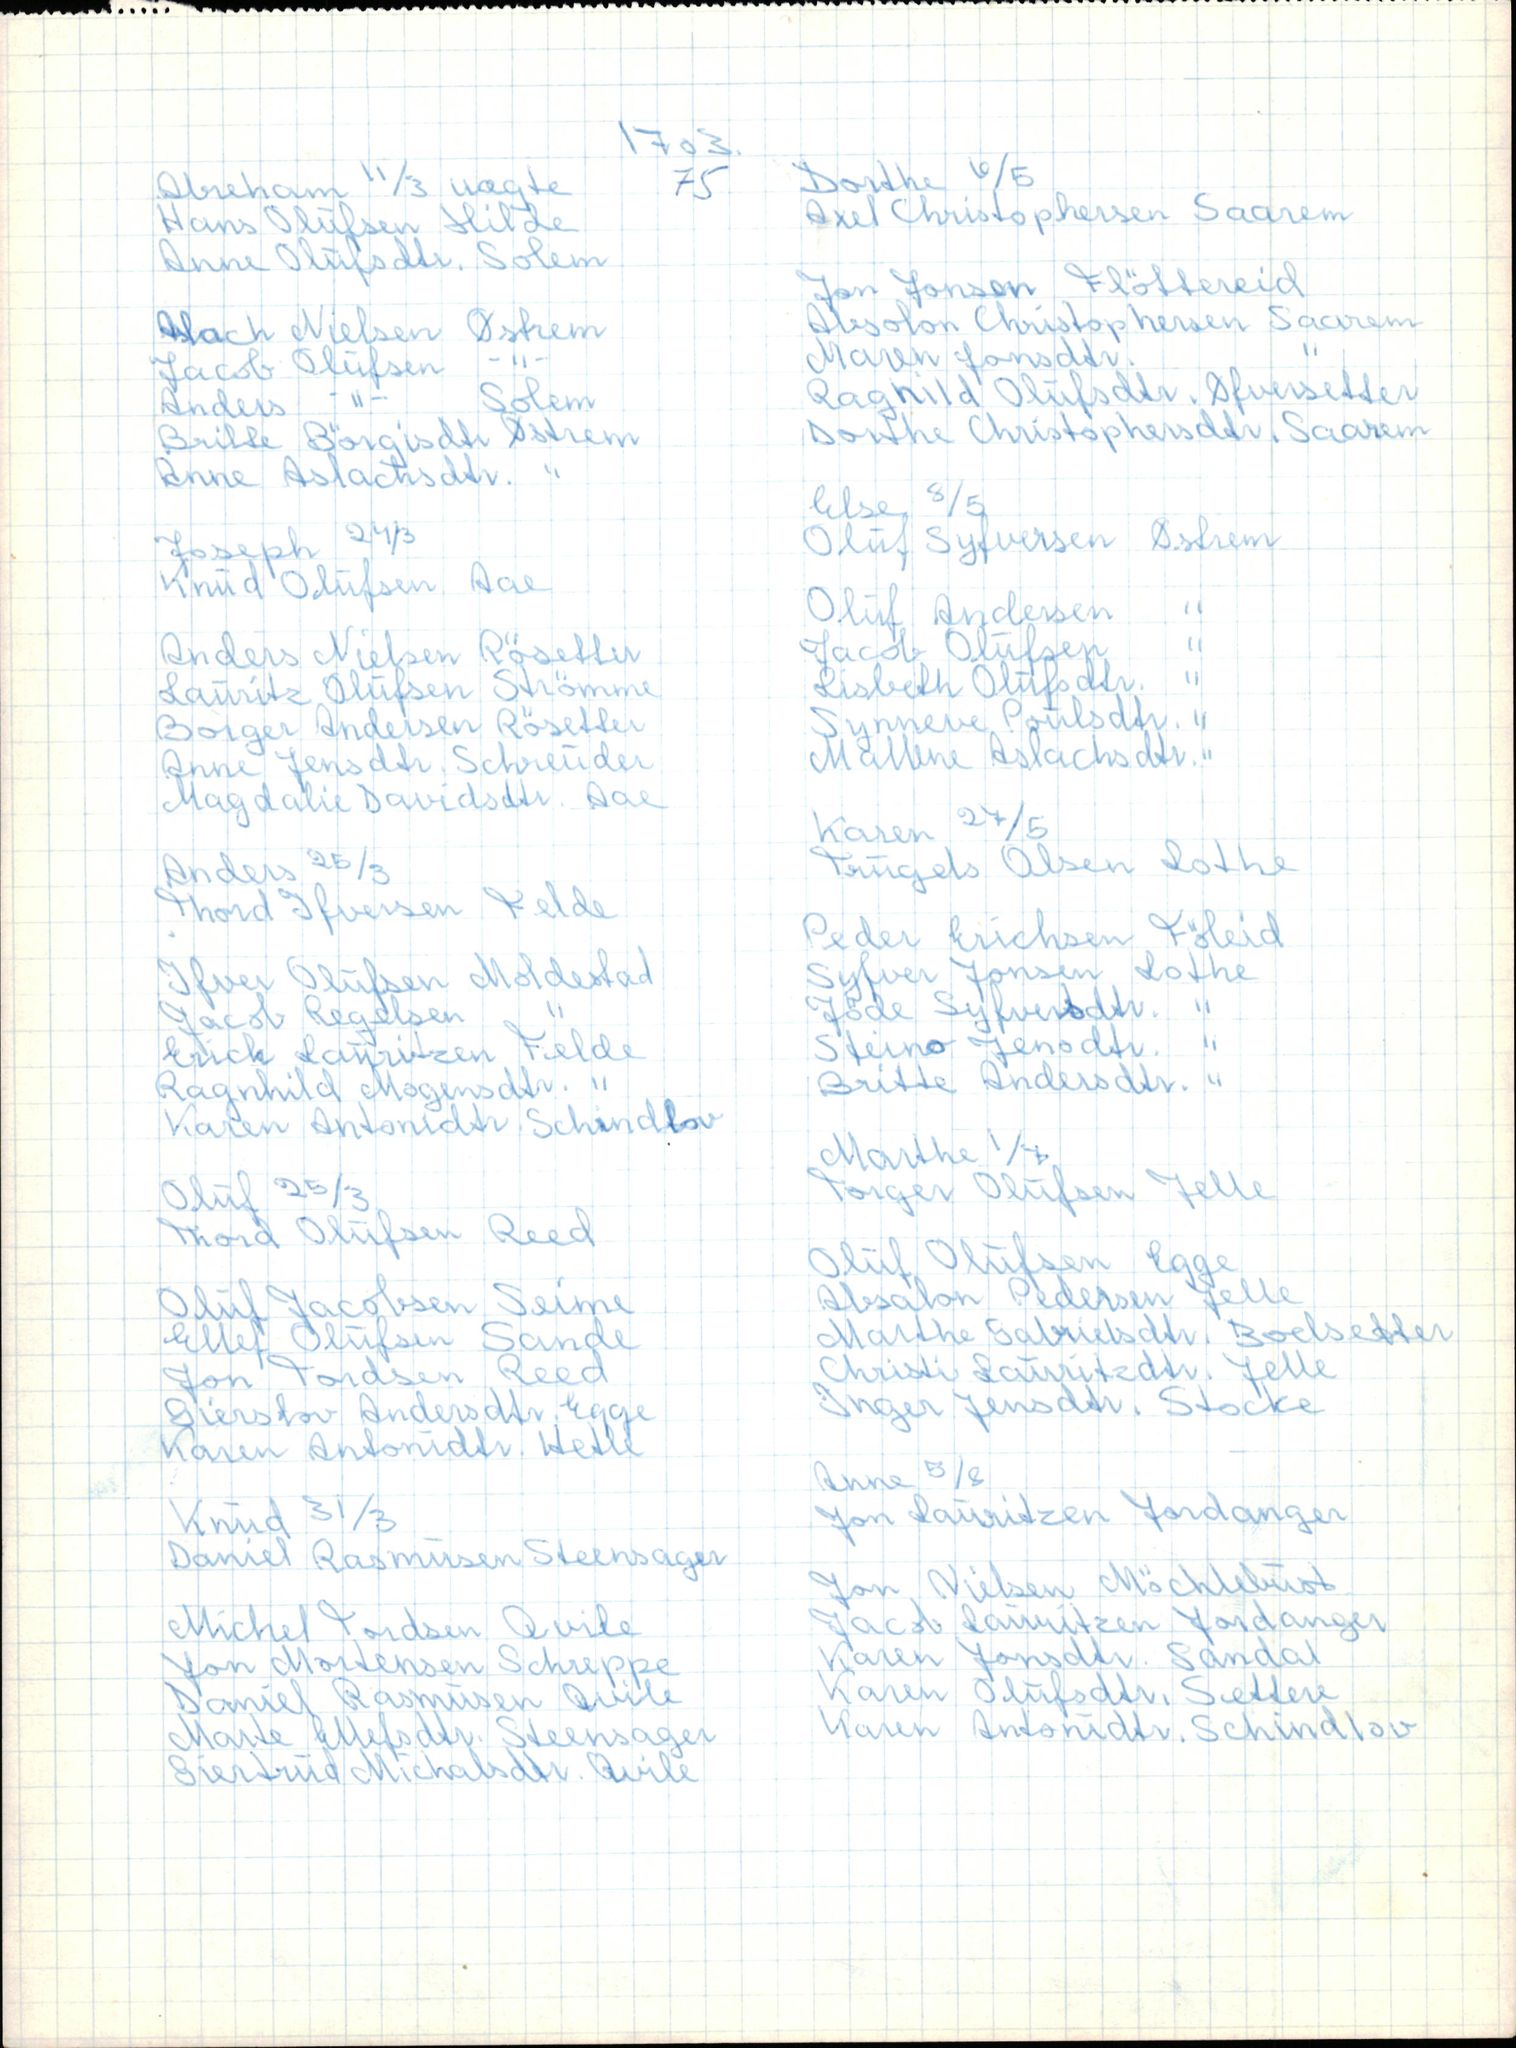 1703.
75
Abreham 11/3 uægte
Hans Olüfsen Hilde
Anne Olüfsdtr. Solem
Aslach Nielsen Østrem
Jacob Olüfsen -"-
Anders -"- Solem
Britte Börgisdtr Østrem
Anne Aslachsdtr. "
Joseph 24/3
Knüd Olüfsen Aae
Anders Nielsen Rösetter
Laüritz Olüfsen Strömme
Borger Andersen Rösetter
Anne Jensdtr. Schreüder
Magdalie Davidsdtr. Aae
Anders 25/3
Thord Ifversen Felde
Ifver Olüfsen Moldestad
Jacob Regelsen "
Erick Laüritzen Felde
Ragnhild Mogensdtr. "
Karen Antonidtr. Schindlov
Olüf 25/3
Thord Olüfsen Reed
Olüf Jacobsen Seime
Ellef Olüfsen Sande
Jon Tordsen Reed
Gierslov Andersdtr. Egge
Karen Antonidtr. Hetle
Knüd 31/3
Daniel Rasmüsen Steensager
Michel Tordsen Qvile
Jon Mortensen Schreppe
Daniel Rasmüsen Qvile
Marte Ellefsdtr. Steensager
Giertrüd Michalsdtr. Qvile
Dorthe 6/5
Axel Christophersen Saarem
Jon Jonsen Flöttereid
Absolon Christophersen Saarem
Maren Jonsdtr. "
Ragnild Olüfsdtr. Øfversetter
Dorthe Christophersdtr. Saarem
Else 8/5
Olüf Syfversen Østrem
Olüf Andersen "
Jacob Olüfsen "
Lisbeth Olüfsdtr. "
Synneve Poülsdtr. "
Mallene Aslachsdtr. "
Karen 27/5
Trügels Olsen Lothe
Peder Erichsen Föleid
Syfver Jonsen Lothe
Jöde Syfversdtr. "
Steino Jensdtr. "
Britte Andersdtr. "
Marthe 1/7
Torger Olüfsen Jelle
Olüf Olüfsen Egge
Absalon Pedersen Jelle
Marthe Gabrielsdtr. Boelsetter
Christi Laüritzdtr. Jelle
Inger Jensdtr. Stocke
Anne 5/8
Jon Laüritzen Jordanger
Jon Nielsen Möchlebüst
Jacob Laüritzen Jordanger
Karen Jonsdtr. Sandal
Karen Olüfsdtr. Settere
Karen Antonidtr. Schindlov